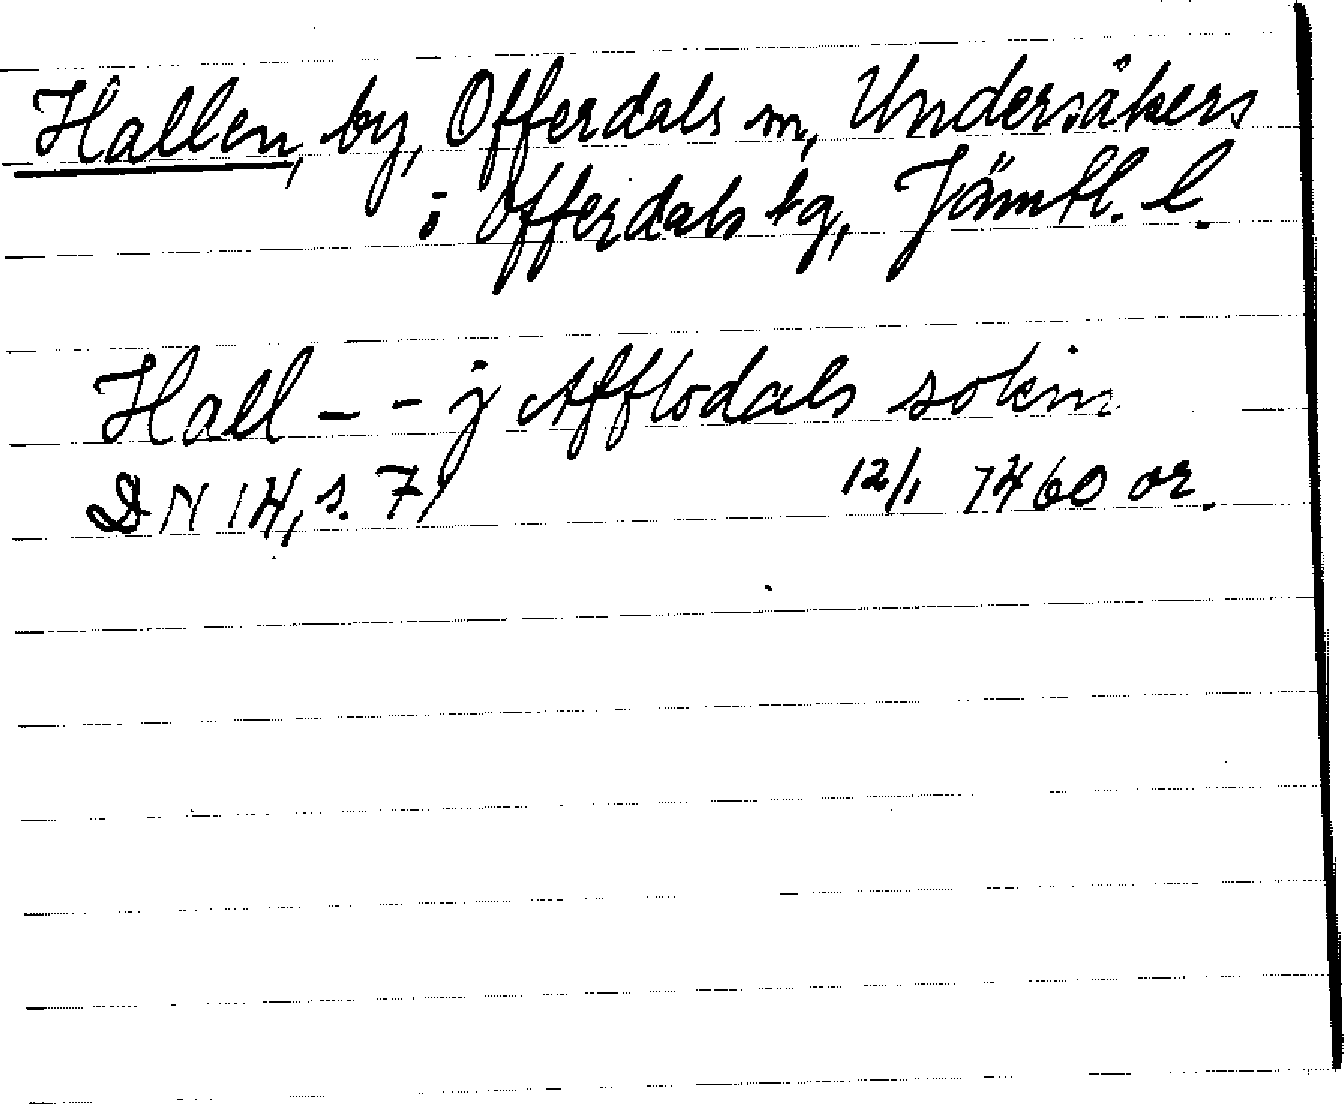 Hallen, by, Offerdals sn, Undersåkers
o Offerdals tg, Jämtl. l.
Hall - - j Afflodals sokn
DN 14, s. 71 12/1 1460 or.